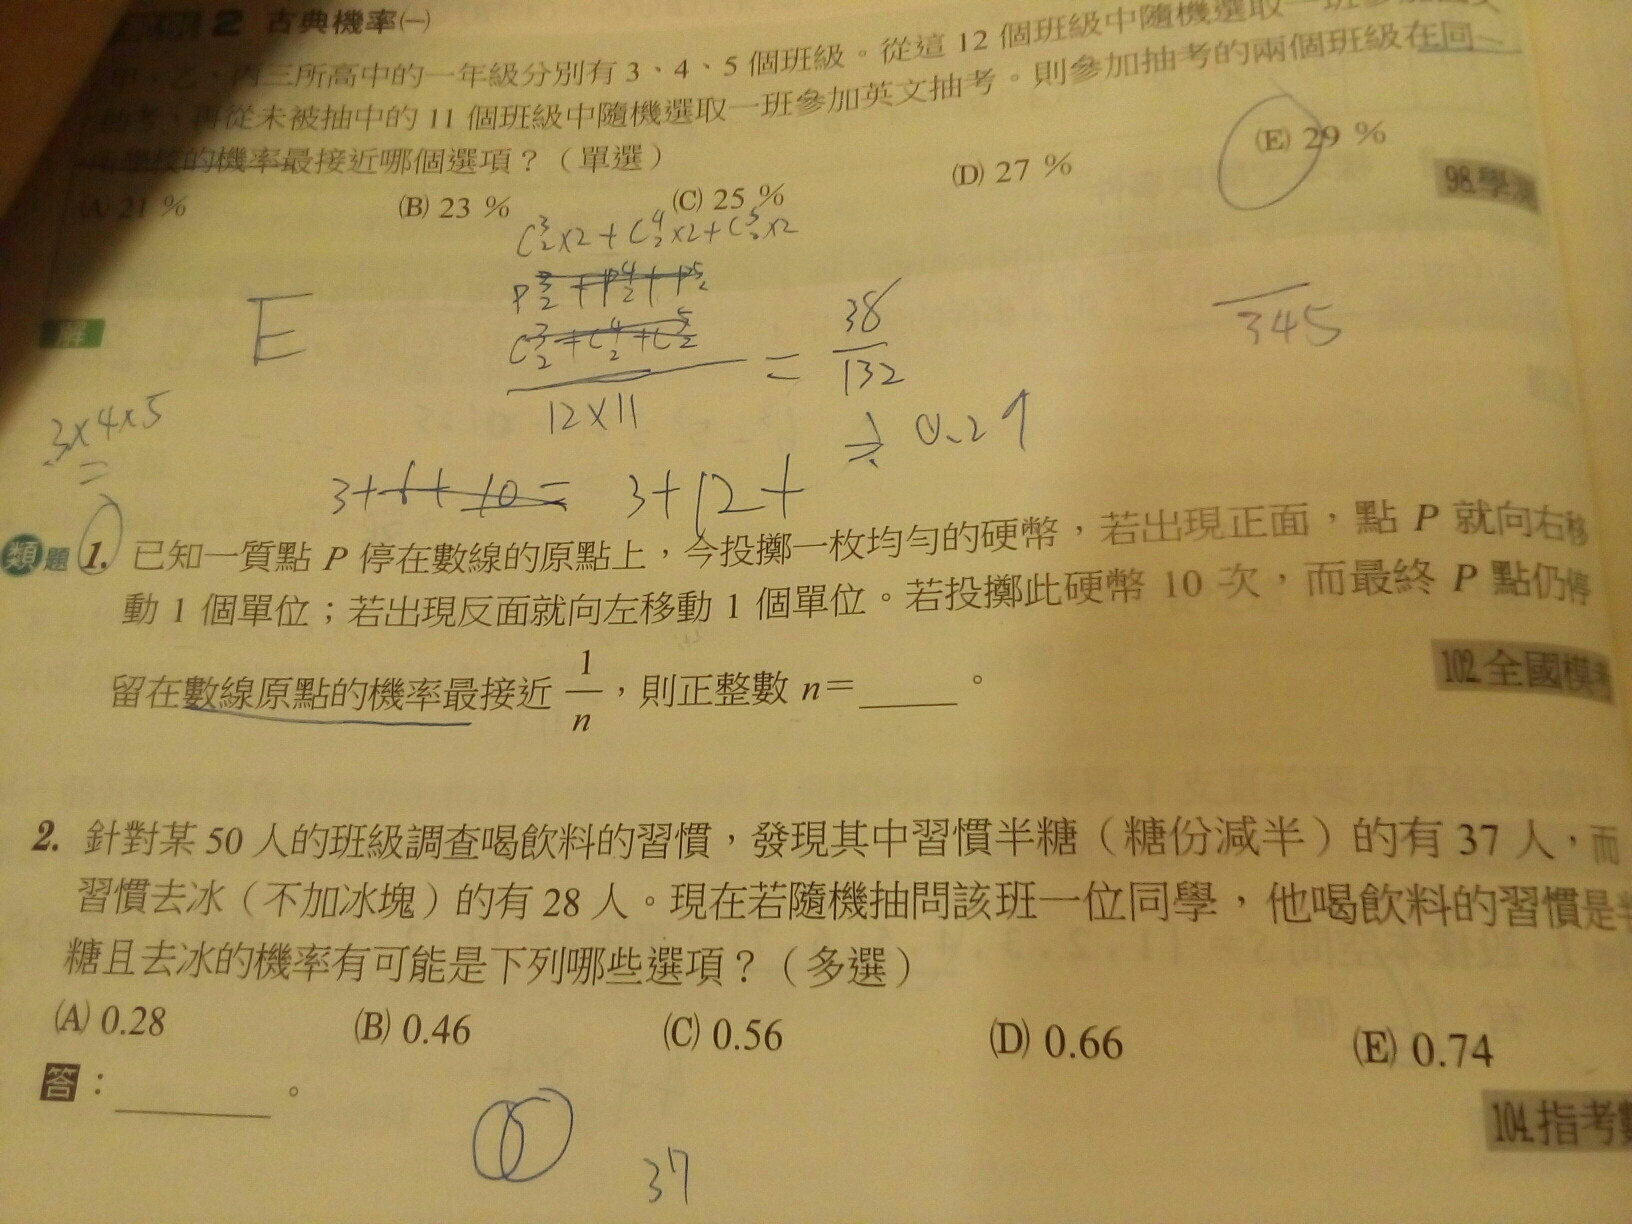 2 古典機率㈠
甲、乙、丙三所高中的一年級分別有 3、4、5 個班級。從這 12 個班級中隨機選取一班參加
抽考、再從未被抽中的 11 個班級中隨機選取一班參加英文抽考。則參加抽考的兩個班級在同一
學校的機率最接近哪個選項?(單選)
98.學測
(A) 21 %
(B) 23 %
(C) 25 %
(D) 27 %
(E) 29 %
C³₂×2 + C⁴₂×2 + C⁵₂×2
P³₂ + P⁴₂ + P⁵₂
C³₂ + C⁴₂ + C⁵₂
12×11
=
38
132
345
解
E
0.29
3×4×5
=
3+6+10= 3+12+
類題 1. 已知一質點 P 停在數線的原點上,今投擲一枚均勻的硬幣,若出現正面,點 P 就向右移
動 1 個單位;若出現反面就向左移動 1 個單位。若投擲此硬幣 10 次,而最終 P 點仍停
留在數線原點的機率最接近 1/n,則正整數 n=____。
102.全國模考
2. 針對某 50 人的班級調查喝飲料的習慣,發現其中習慣半糖(糖份減半)的有 37 人,而
習慣去冰(不加冰塊)的有 28 人。現在若隨機抽問該班一位同學,他喝飲料的習慣是半
糖且去冰的機率有可能是下列哪些選項?(多選)
(A) 0.28
(B) 0.46
(C) 0.56
(D) 0.66
(E) 0.74
答:____。
104.指考數
37